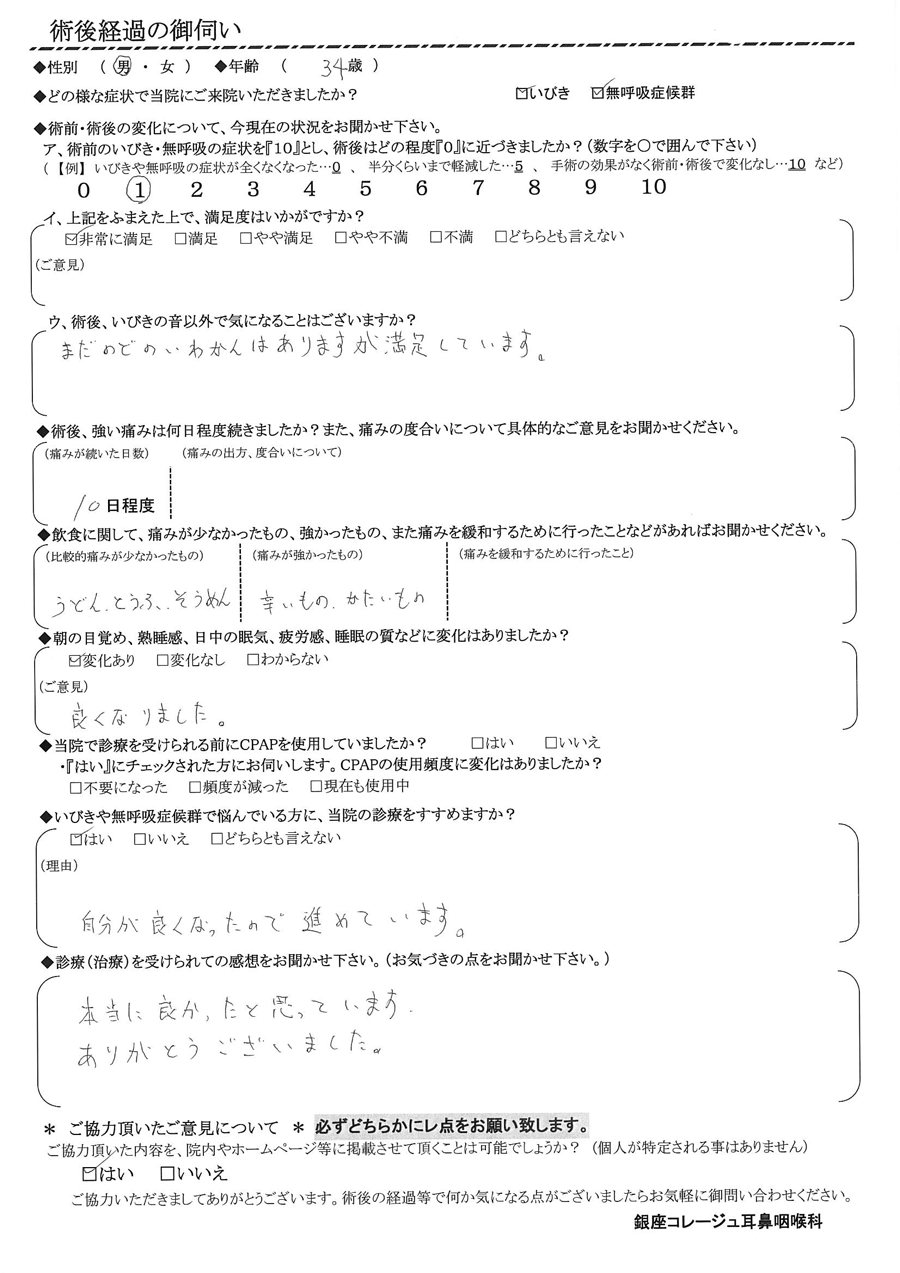 術後経過の御伺い
◆性別 （ 男 ・ 女 ） ◆年齢 （ 34歳 ）
◆どの様な症状で当院にご来院いただきましたか？ ☑いびき ☑無呼吸症候群
◆術前・術後の変化について、今現在の状況をお聞かせ下さい。
ア、術前のいびき・無呼吸の症状を『10』とし、術後はどの程度『0』に近づきましたか？（数字を〇で囲んで下さい）
（ 【例】 いびきや無呼吸の症状が全くなくなった…0 、 半分くらいまで軽減した…5 、 手術の効果がなく術前・術後で変化なし…10 など）
0 1 2 3 4 5 6 7 8 9 10
イ、上記をふまえた上で、満足度はいかがですか？
☑非常に満足 □満足 □やや満足 □やや不満 □不満 □どちらとも言えない
（ご意見）
ウ、術後、いびきの音以外で気になることはございますか？
まだのどのいわかんはありますが満足しています。
◆術後、強い痛みは何日程度続きましたか？また、痛みの度合いについて具体的なご意見をお聞かせください。
（痛みが続いた日数） （痛みの出方、度合いについて）
10日程度
◆飲食に関して、痛みが少なかったもの、強かったもの、また痛みを緩和するために行ったことなどがあればお聞かせください。
（比較的痛みが少なかったもの） （痛みが強かったもの） （痛みを緩和するために行ったこと）
うどん、とうふ、そうめん 辛いもの、かたいもの
◆朝の目覚め、熟睡感、日中の眠気、疲労感、睡眠の質などに変化はありましたか？
☑変化あり □変化なし □わからない
（ご意見）
良くなりました。
◆当院で診療を受けられる前にCPAPを使用していましたか？ □はい □いいえ
・『はい』にチェックされた方にお伺いします。CPAPの使用頻度に変化はありましたか？
□不要になった □頻度が減った □現在も使用中
◆いびきや無呼吸症候群で悩んでいる方に、当院の診療をすすめますか？
☑はい □いいえ □どちらとも言えない
（理由）
自分が良くなったので進めています。
◆診療（治療）を受けられての感想をお聞かせ下さい。（お気づきの点をお聞かせ下さい。）
本当に良かったと思っています.
ありがとうございました。
＊ ご協力頂いたご意見について ＊ 必ずどちらかにレ点をお願い致します。
ご協力頂いた内容を、院内やホームページ等に掲載させて頂くことは可能でしょうか？ （個人が特定される事はありません）
☑はい □いいえ
ご協力いただきましてありがとうございます。術後の経過等で何か気になる点がございましたらお気軽に御問い合わせください。
銀座コレージュ耳鼻咽喉科